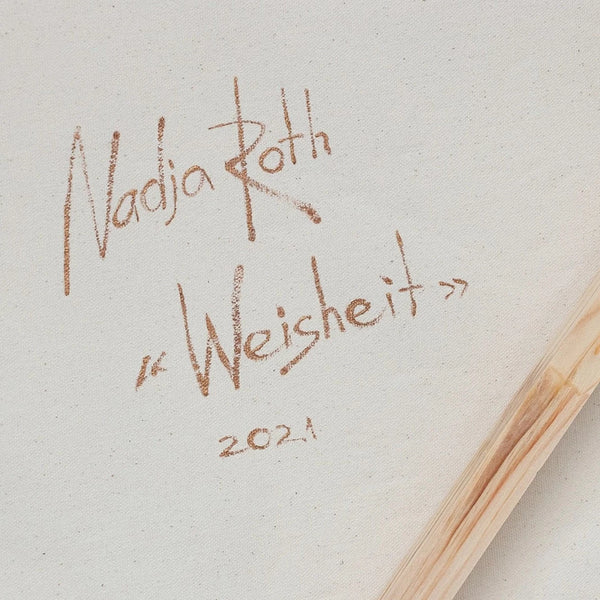 Nadja Roth
« Weisheit »
2021